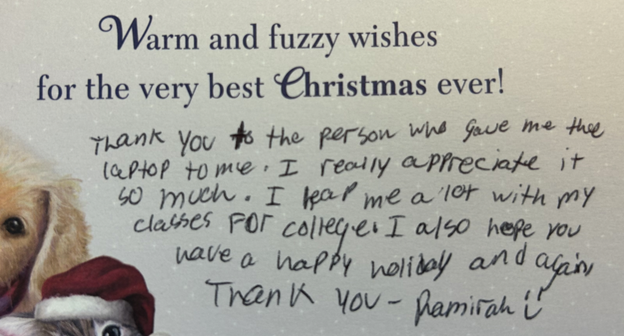 Warm and fuzzy wishes
for the very best Christmas ever!
Thank you to the person who gave me the
laptop to me. I really appreciate it
so much. I heap me a lot with my
classes for college. I also hope you
have a happy holiday and again
Thank you - Damirah